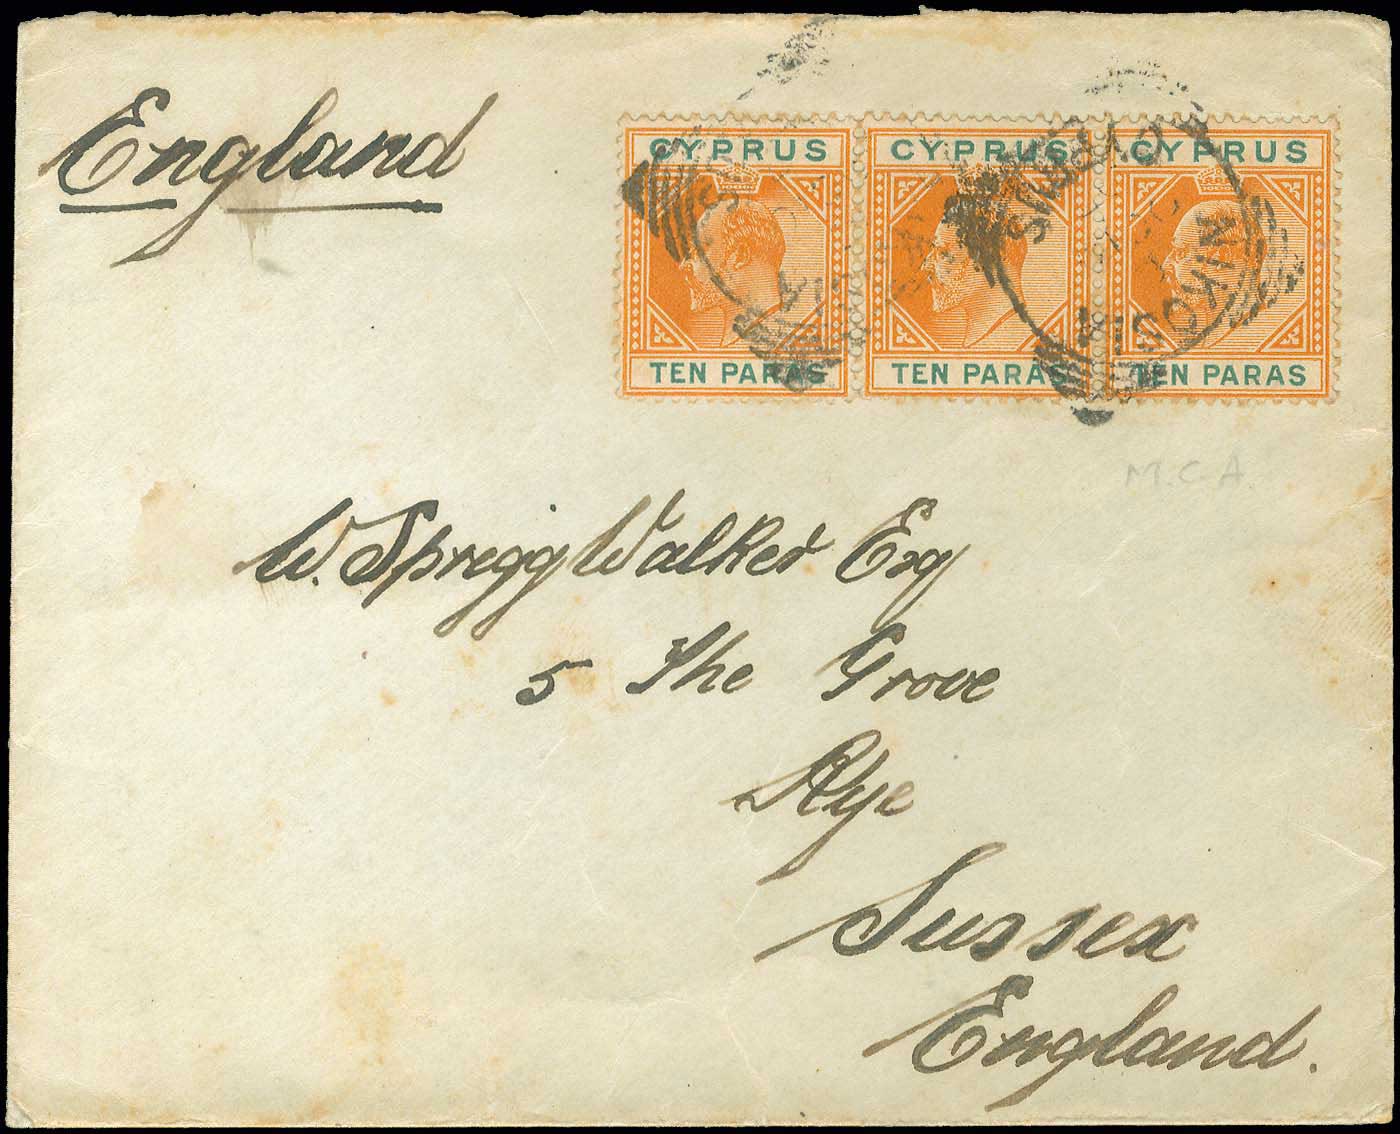 England
CYPRUS CYPRUS CYPRUS
TEN PARAS TEN PARAS TEN PARAS
CYPRUS
NICOSIA
M.C.A.
W. Spregg Walker Esq
5 The Grove
Rye
Sussex
England.